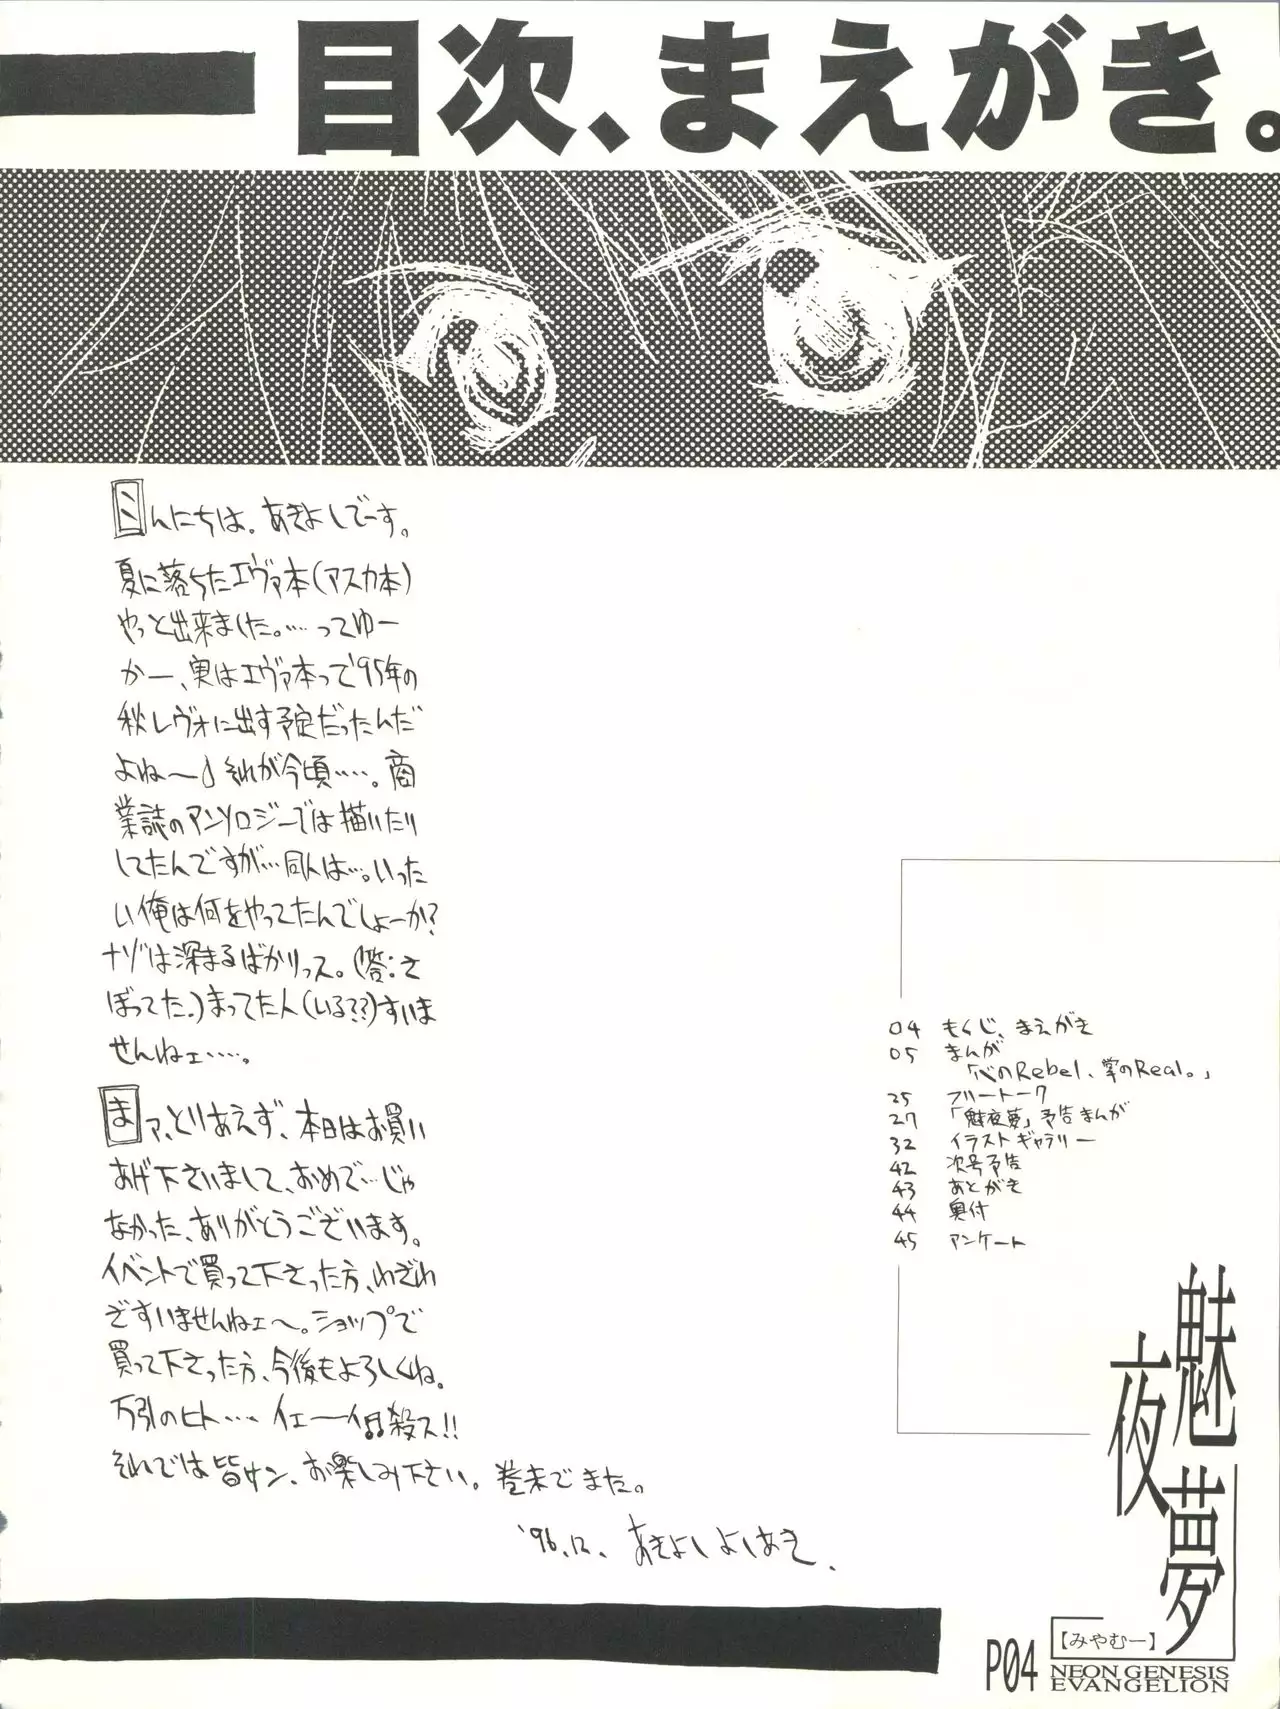 目次、まえがき。
こんにちは。あきよしでーす。
夏に落ちたエヴァ本(アスカ本)
やっと出来ました。…ってゆー
かー、実はエヴァ本って'95年の
秋レヴォに出す予定だったんだ
よね〜♪それが今頃……。商
業誌のアンソロジーでは描いたり
してたんですが…同人は…。いった
い俺は何をやってたんでしょーか?
ナゾは深まるばかりっス。(答:さ
ぼってた。)まってた人(いる??)すいま
せんねェ……。
まァ、とりあえず、本日はお買い
あげ下さいまして、おめで…じゃ
なかった、ありがとうございます。
イベントで買って下さった方、わざわ
ざすいませんねェ〜。ショップで
買って下さった方、今後もよろしくね。
万引のヒト…… イェー殺ス!!
それでは皆サン、お楽しみ下さい。巻末でまた。
'96.12. あきよしよしあき.
04 もくじ、まえがき
05 まんが
「心のRebel、掌のReal。」
25 フリートーク
27 「魅夜夢」予告まんが
32 イラストギャラリー
42 次号予告
43 あとがき
44 奥付
45 アンケート
魅夜夢
【みやむー】
P04
NEON GENESIS
EVANGELION